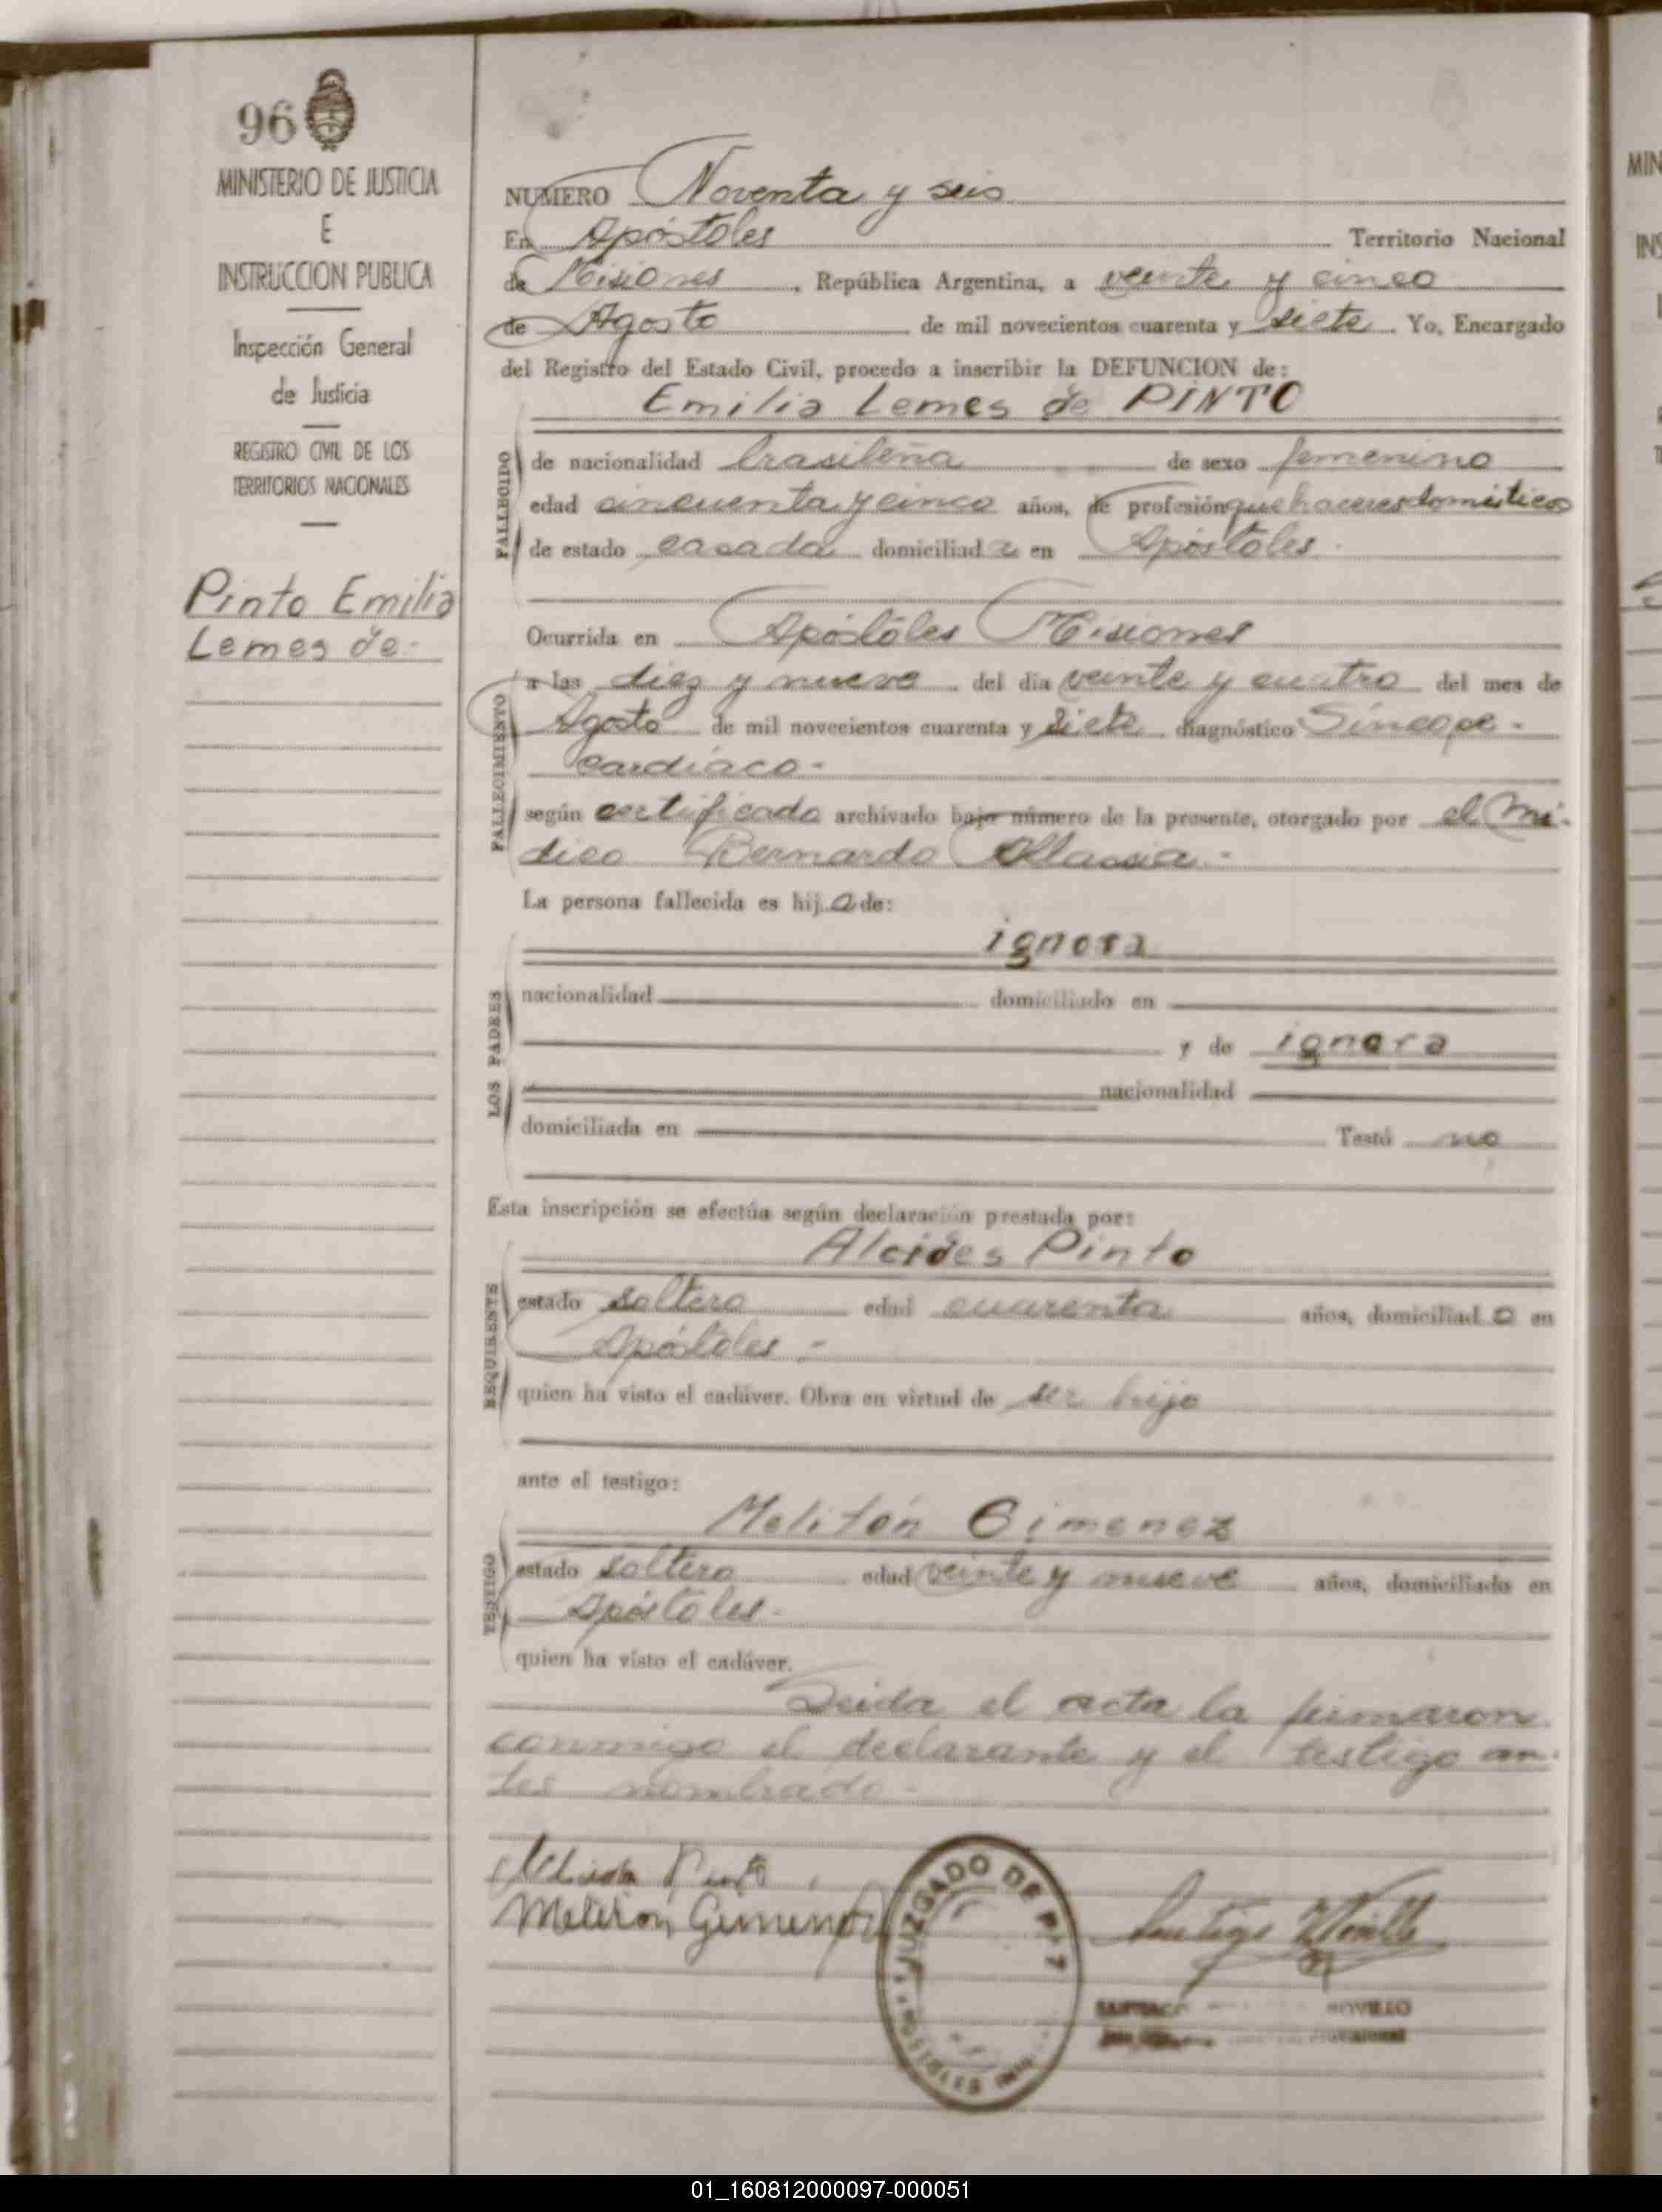 96
MINISTERIO DE JUSTICIA
E
INSTRUCCION PUBLICA
Inspección General
de Justicia
REGISTRO CIVIL DE LOS
TERRITORIOS NACIONALES
Pinto Emilia
Lemes de-
NUMERO Noventa y seis
En Apóstoles Territorio Nacional
de Misiones, República Argentina, a veinte y cinco
de Agosto de mil novecientos cuarenta y siete. Yo, Encargado
del Registro del Estado Civil, procedo a inscribir la DEFUNCION de:
Emilia Lemes de PINTO
FALLECIDO
de nacionalidad brasileña de sexo femenino
edad cincuenta y cinco años, de profesión quehaceres domésticos
de estado casada domiciliada en Apóstoles.
Ocurrida en Apóstoles Misiones
FALLECIMIENTO
a las diez y nueve del día veinte y cuatro del mes de
Agosto de mil novecientos cuarenta y siete diagnóstico Síncope-
cardíaco-
según certificado archivado bajo número de la presente, otorgado por el mé-
dico Bernardo
La persona fallecida es hija de:
LOS PADRES
ignora
nacionalidad domiciliado en
y de ignora
nacionalidad
domiciliada en Testó no
Esta inscripción se efectúa según declaración prestada por:
REQUIRENTE
Alcides Pinto
estado soltero edad cuarenta años, domiciliado en
Apóstoles.-
quien ha visto el cadáver. Obra en virtud de ser hijo
ante el testigo:
TESTIGO
Melitón Gimenez
estado soltero edad veinte y nueve años, domiciliado en
Apóstoles.-
quien ha visto el cadáver.
Leida el acta la firmaron
conmigo el declarante y el testigo an-
tes nombrado-
Pinto
Meliton Gimenez
JUZGADO DE PAZ
APOSTOLES
01_160812000097-000051